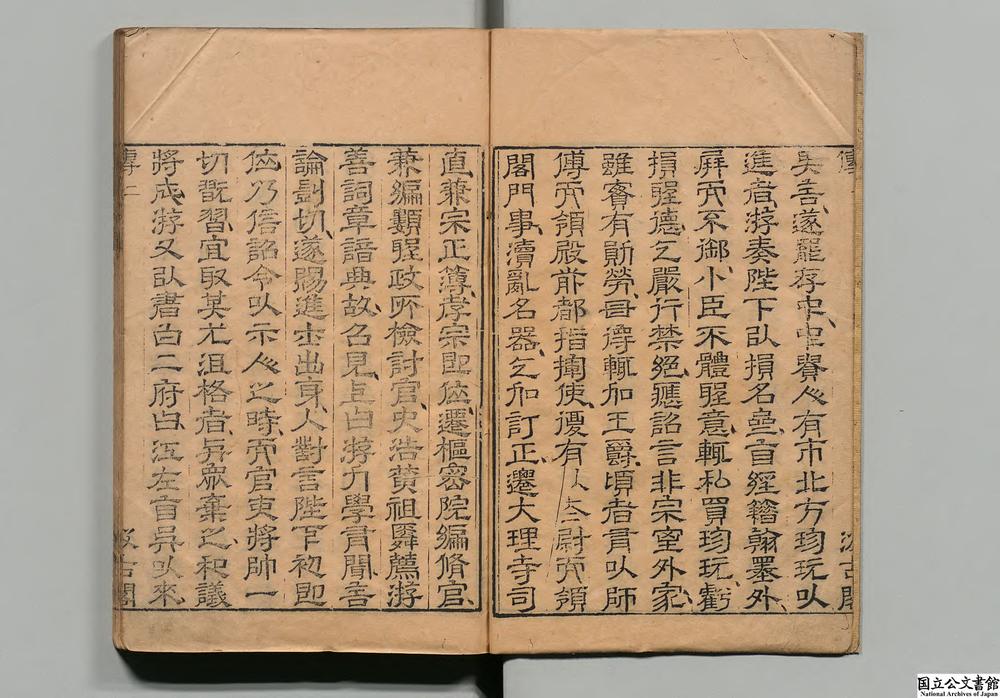 傳
汲古閣
善遂罷存中中貴人有市北方珍玩以
進者游奏陛下以損名齋自經籍翰墨外
屏而不御小臣不體聖意輒私買珍玩虧
損聖德乞嚴行禁絕應詔言非宗室外家
雖實有勛勞毋得輒加王爵頃者有以師
傅而領殿前都指揮使復有以太尉而領
閤門事瀆亂名器乞加訂正遷大理寺司
直兼宗正簿孝宗即位遷樞密院編修官
兼編類聖政所檢討官史浩黃祖舜薦游
善詞章諳典故召見上曰游力學有聞言
論剴切遂賜進士出身入對言陛下初即
位乃信詔令以示人之時而官吏將帥一
切翫習宜取其尤沮格者與眾棄之和議
將成游又以書白二府曰江左自吳以來
傳二
汲古閣
国立公文書館
National Archives of Japan